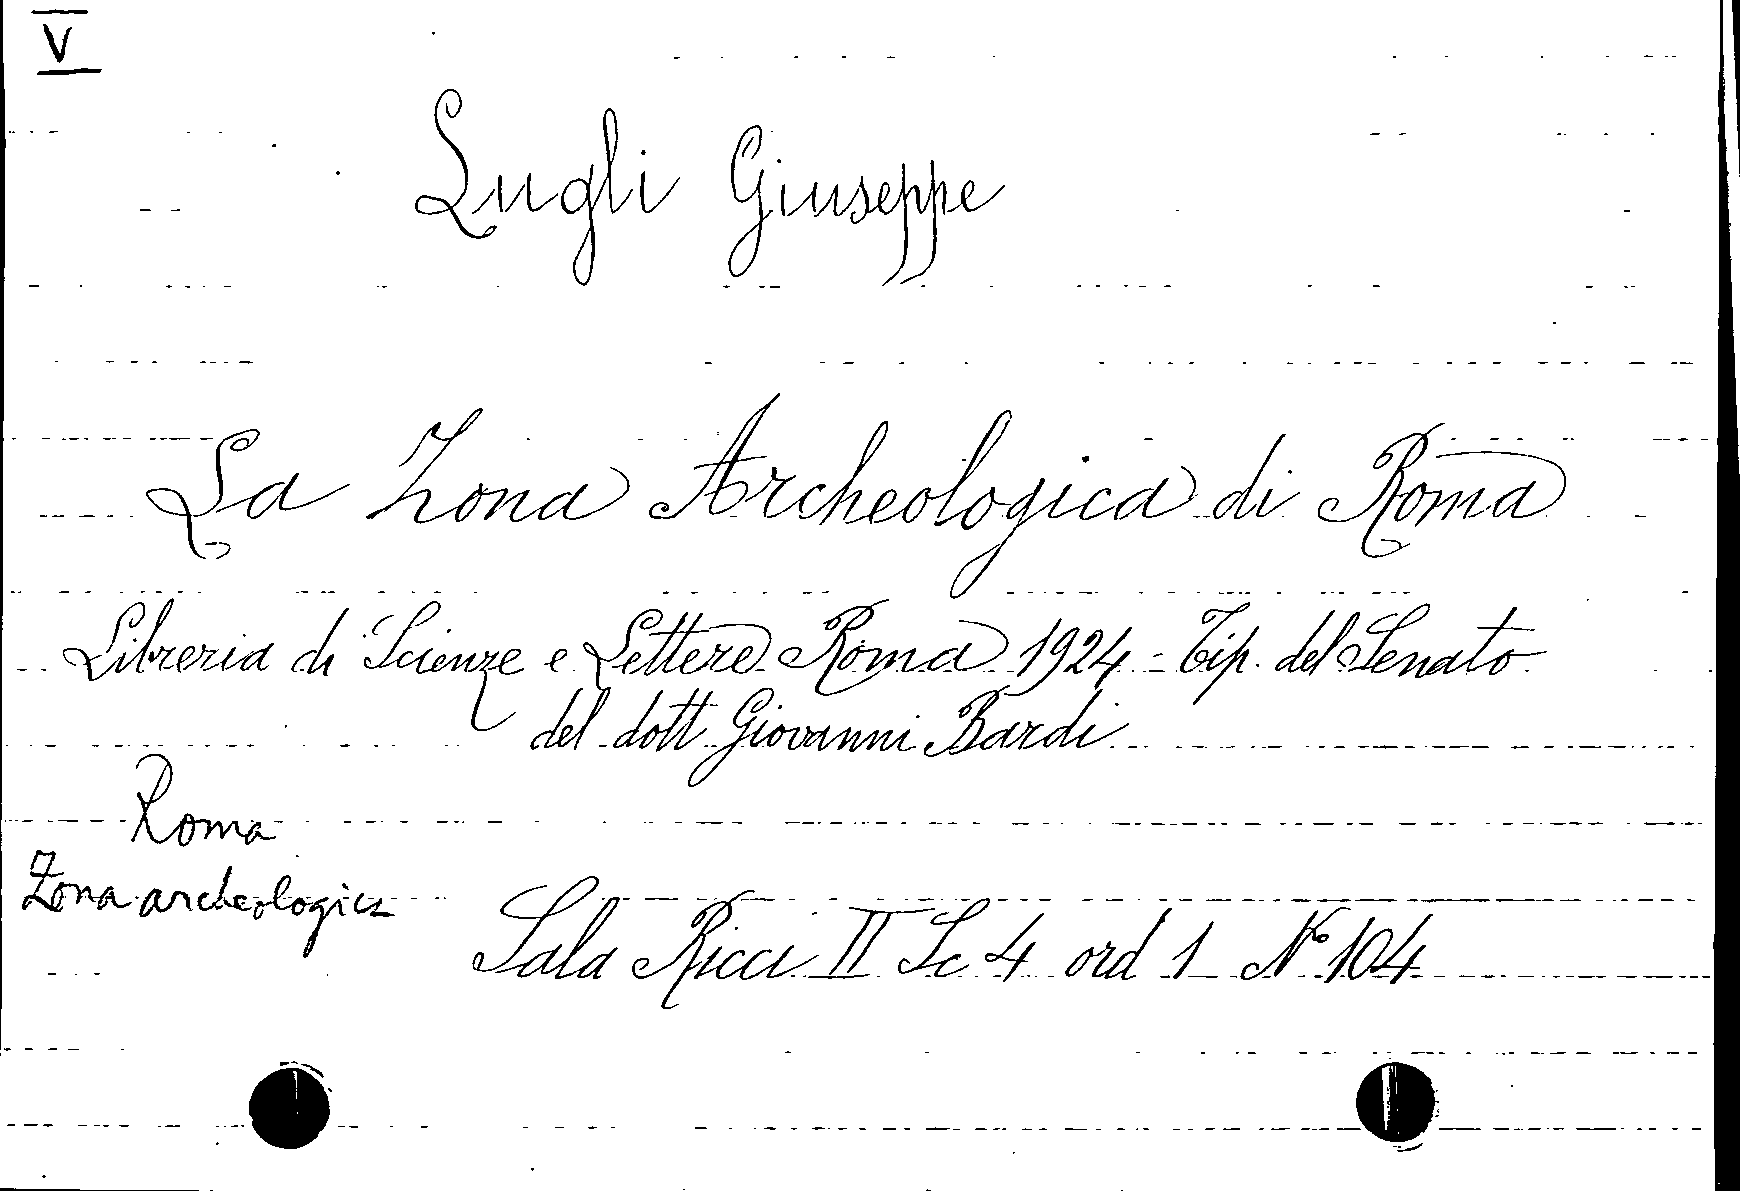 V
Lugli Giuseppe
La Zona Archeologica di Roma
Libreria di Scienze e Lettere Roma 1924 - Tip. del Senato
del dott Giovanni Bardi
Roma
Zona archeologica
Sala Ricci II Sc 4 ord 1 N° 104